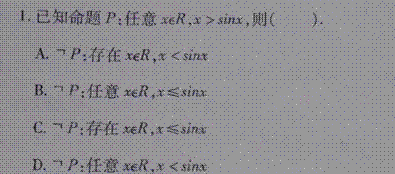 1. 已知命题 P:任意 xϵR,x>sinx,则(　　).
A. ¬ P:存在 xϵR,x<sinx
B. ¬ P:任意 xϵR,x⩽sinx
C. ¬ P:存在 xϵR,x⩽sinx
D. ¬ P:任意 xϵR,x<sinx